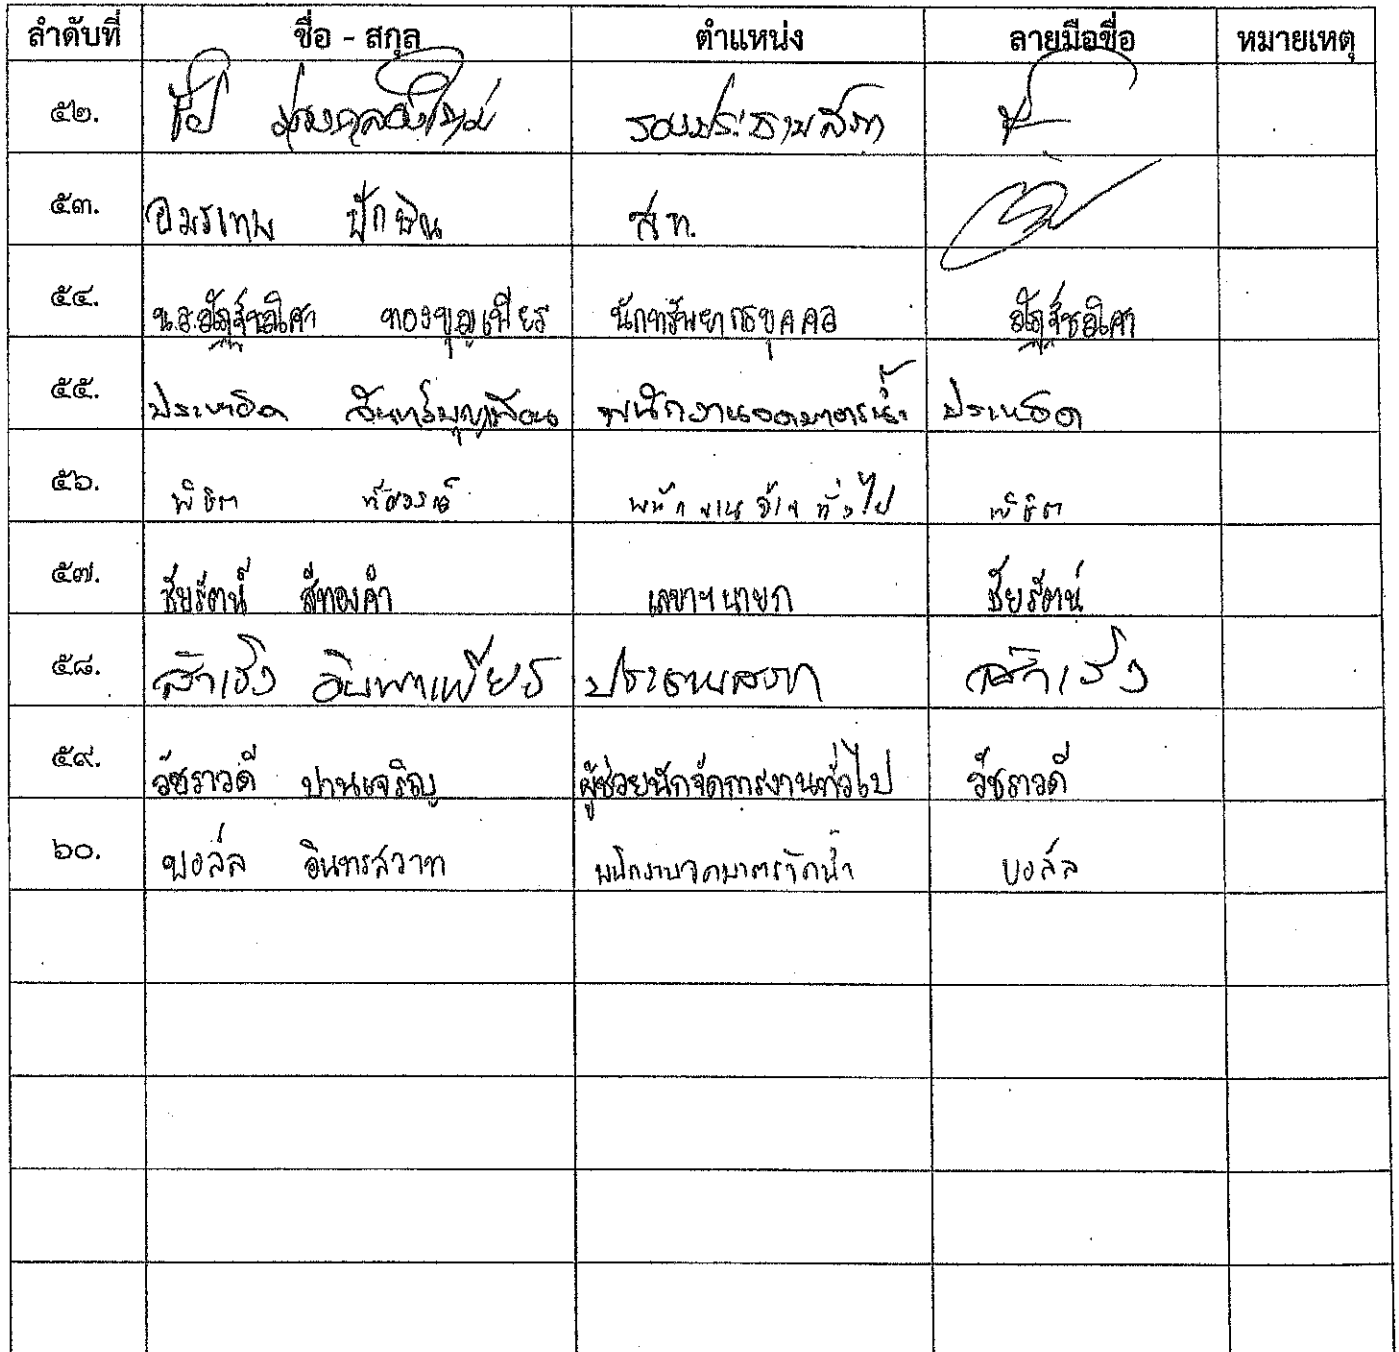 ลำดับที่ ชื่อ - สกุล ตำแหน่ง ลายมือชื่อ หมายเหตุ
๕๒. รองประธานสภา
๕๓. อมรเทพ ปักษิณ ส.ท.
๕๔. น.ส. นักทรัพยากรบุคคล
๕๕. ประหยัด พนักงานจดมาตรน้ำ ประหยัด
๕๖. พิชิต พนักงานจ้างทั่วไป พิชิต
๕๗. ชัยรัตน์ สีทองคำ เลขาฯนายก ชัยรัตน์
๕๘. สำเริง ประธานสภา สำเริง
๕๙. วัชราวดี ปานเจริญ ผู้ช่วยนักจัดการงานทั่วไป วัชราวดี
๖๐. อินทรสวาท พนักงานจดมาตรวัดน้ำ